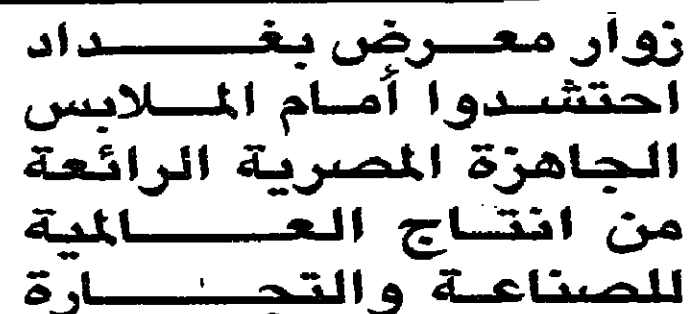 زوار معرض بغداد
احتشدوا أمام الملابس
الجاهزة المصرية الرائعة
من انتاج العالمية
للصناعة والتجارة